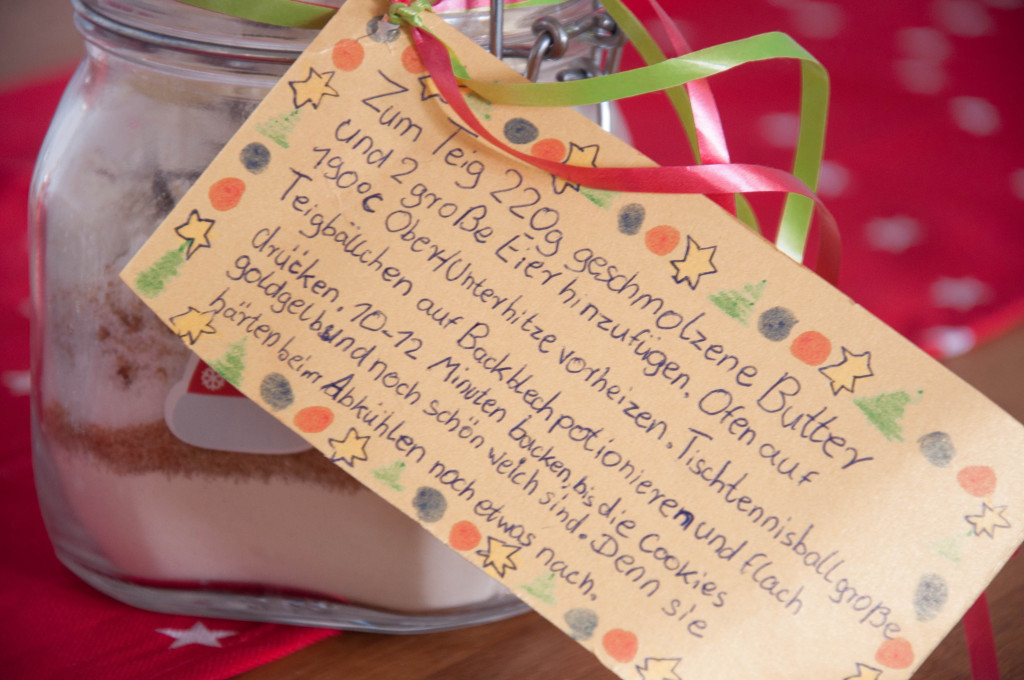 Zum Teig 220g geschmolzene Butter
und 2 große Eier hinzufügen. Ofen auf
190°C Ober/Unterhitze vorheizen. Tischtennisballgroße
Teigbällchen auf Backblech potionieren und flach
drücken. 10-12 Minuten backen, bis die Cookies
goldgelb sund noch schön weich sind. Denn sie
härten beim Abkühlen noch etwas nach.